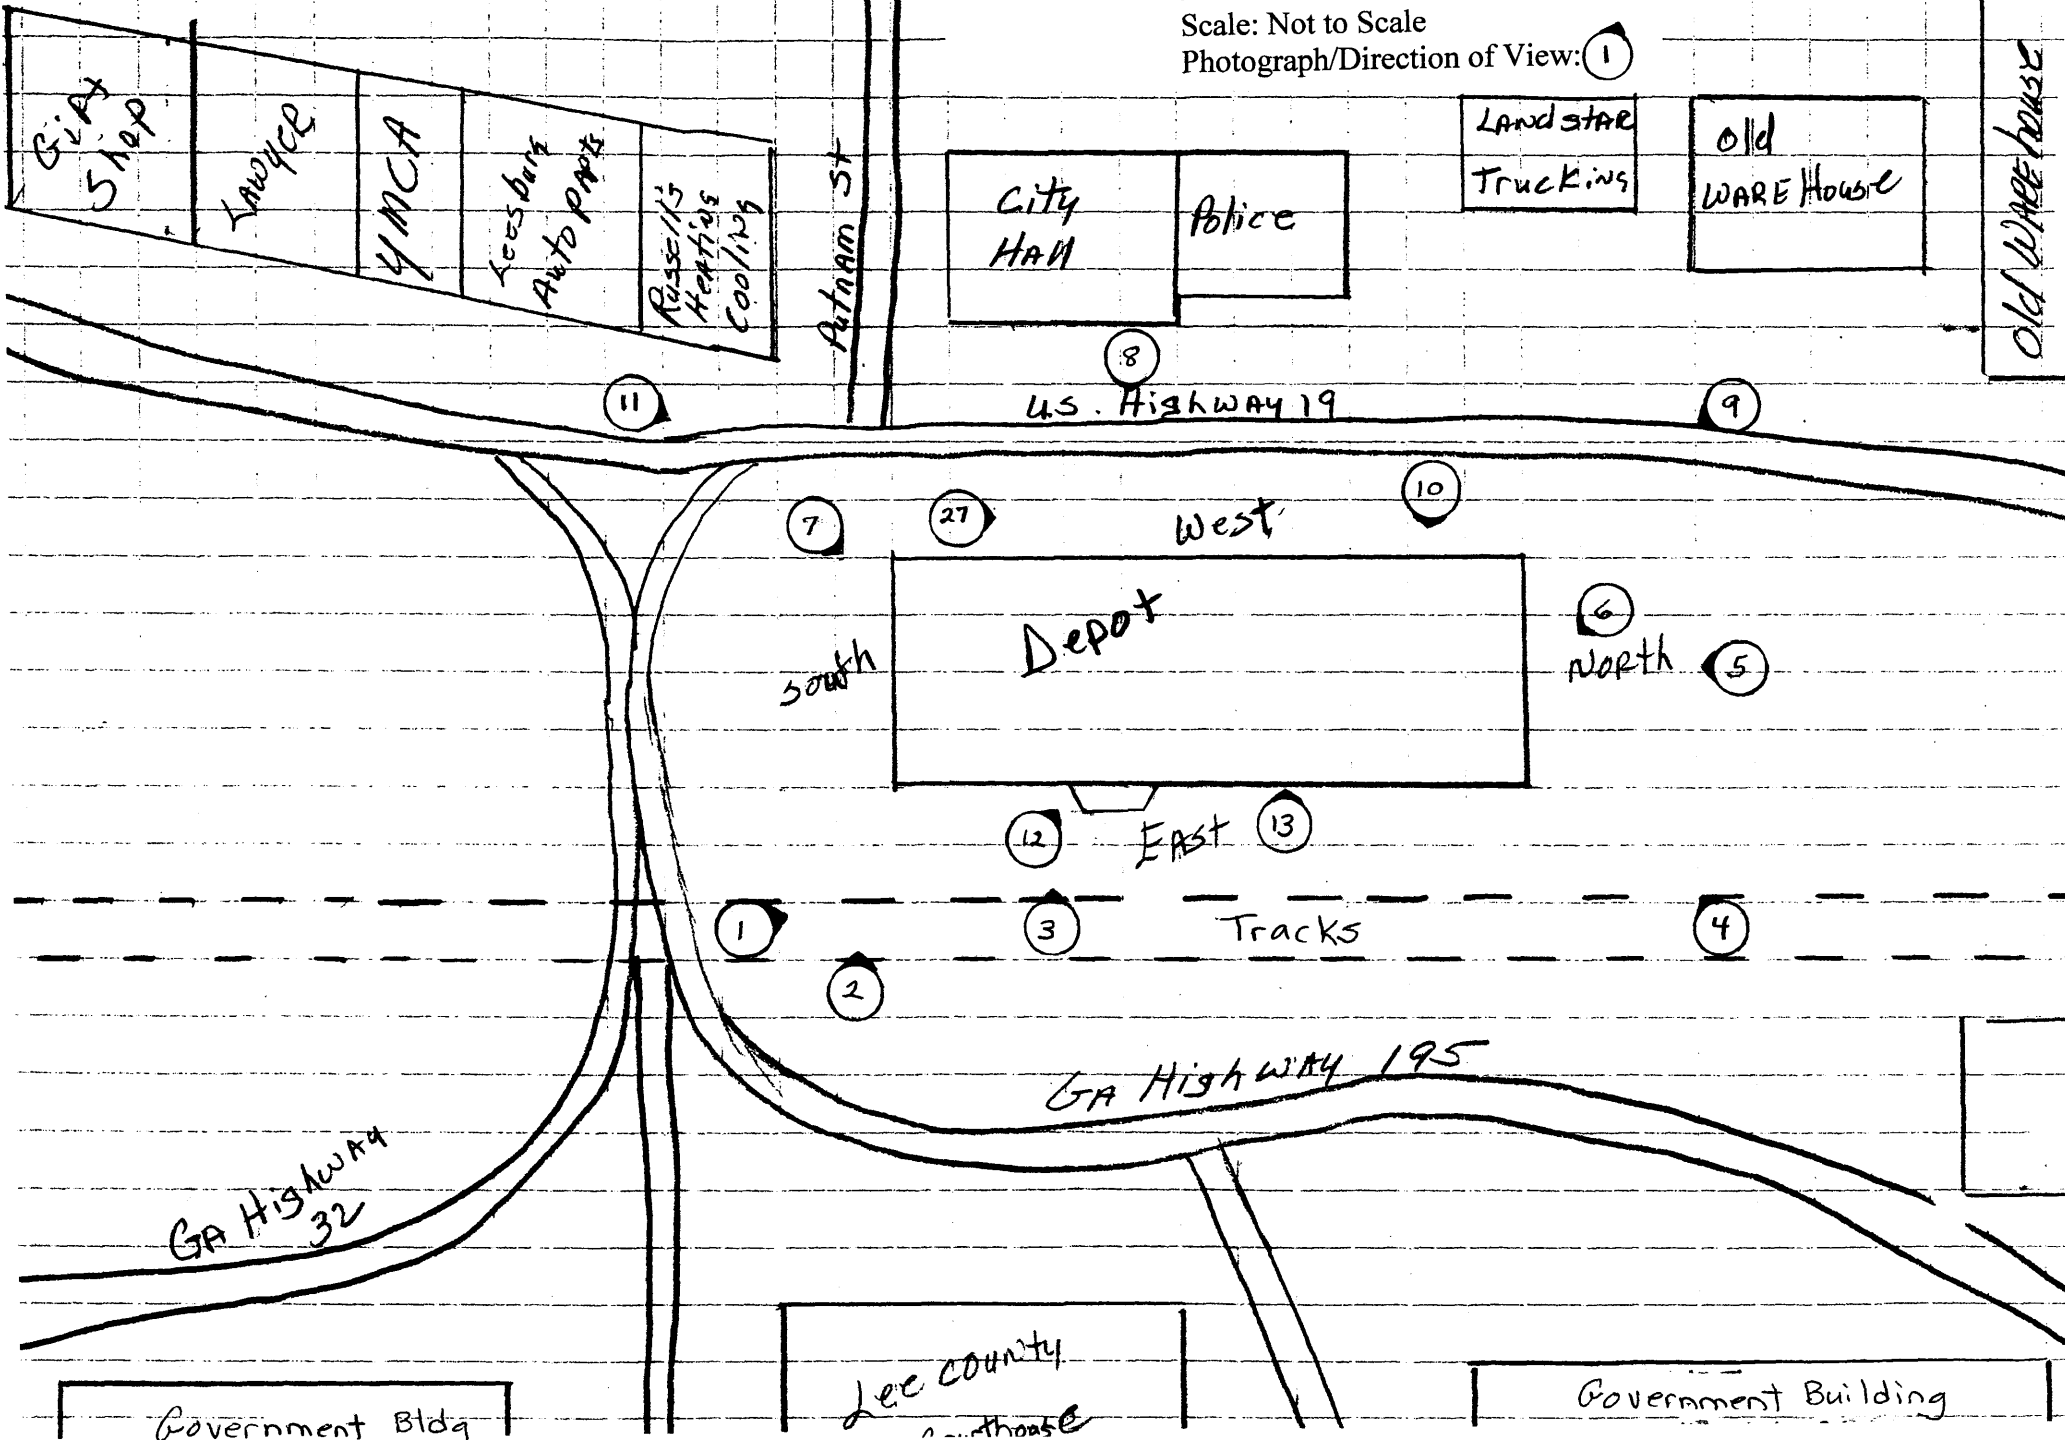 Scale: Not to Scale
Photograph/Direction of View: 1
Gift
Shop
LAWYCR
YMCA
Leesburg
Auto PARts
Russell's
HeAting
Cooling
Putnam St
City
HAll
Police
LANdstAR
Trucking
Old
WARE House
Old WAREhouse
8
11
U.S. HighwAy 19
9
10
7
27
West
6
Depot
South
NORth
5
12
EAst
13
1
3
Tracks
4
2
GA HighwAy 195
GA HighwAy
32
Lee County
Courthouse
Government Bldg
Government Building